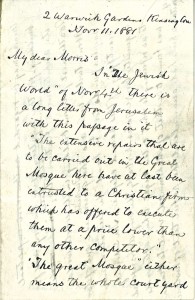 2 Warwick Gardens Kensington
Novr 11. 1881
My dear Morris
In the Jewish
World" of Novr 4th there is
a long letter from Jerusalem
with this passage in it
"The extensive repairs that are
to be carried out in the Great
Mosque here have at last been
intrusted to a Christian firm
which has offered to execute
them at a price lower than
any other competitor."
"The great Mosque" either
means the whole court yard